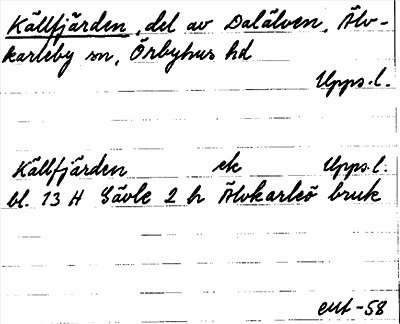 Källfjärden, del av Dalälven, Älv-
karleby sn, Örbyhus hd
Upps.l.
Källfjärden ek Upps.l.
bl. 13 H Gävle 2 h Älvkarleö bruk
eut-58